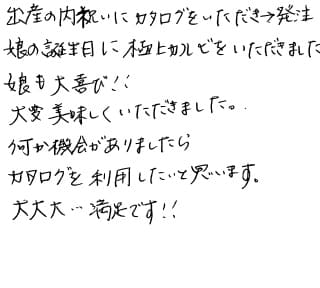 出産の内祝いにカタログをいただき→発注
娘の誕生日に極上カルビをいただきました
娘も大喜び!!
大変美味しくいただきました。
何か機会がありましたら
カタログを利用したいと思います。
大大大…満足です!!